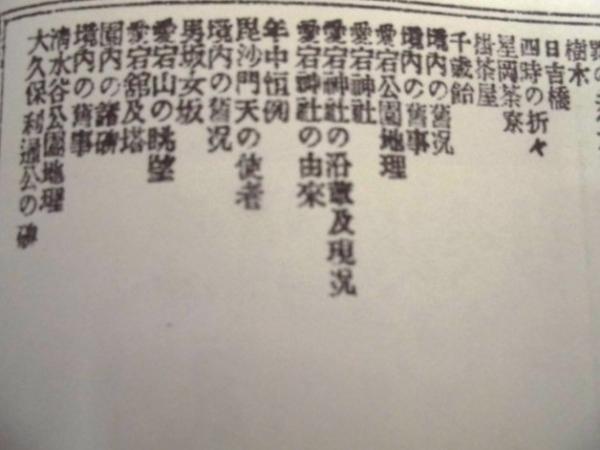 樹木
日吉橋
四時の折々
星岡茶寮
掛茶屋
千歳飴
境内の舊況
境内の舊事
愛宕公園地理
愛宕神社
愛宕神社の沿革及現況
愛宕神社の由來
年中恒例
毘沙門天の使者
境内の舊況
男坂女坂
愛宕山の眺望
愛宕舘及塔
園内の諸碑
境内の舊事
清水谷公園地理
大久保利通公の碑